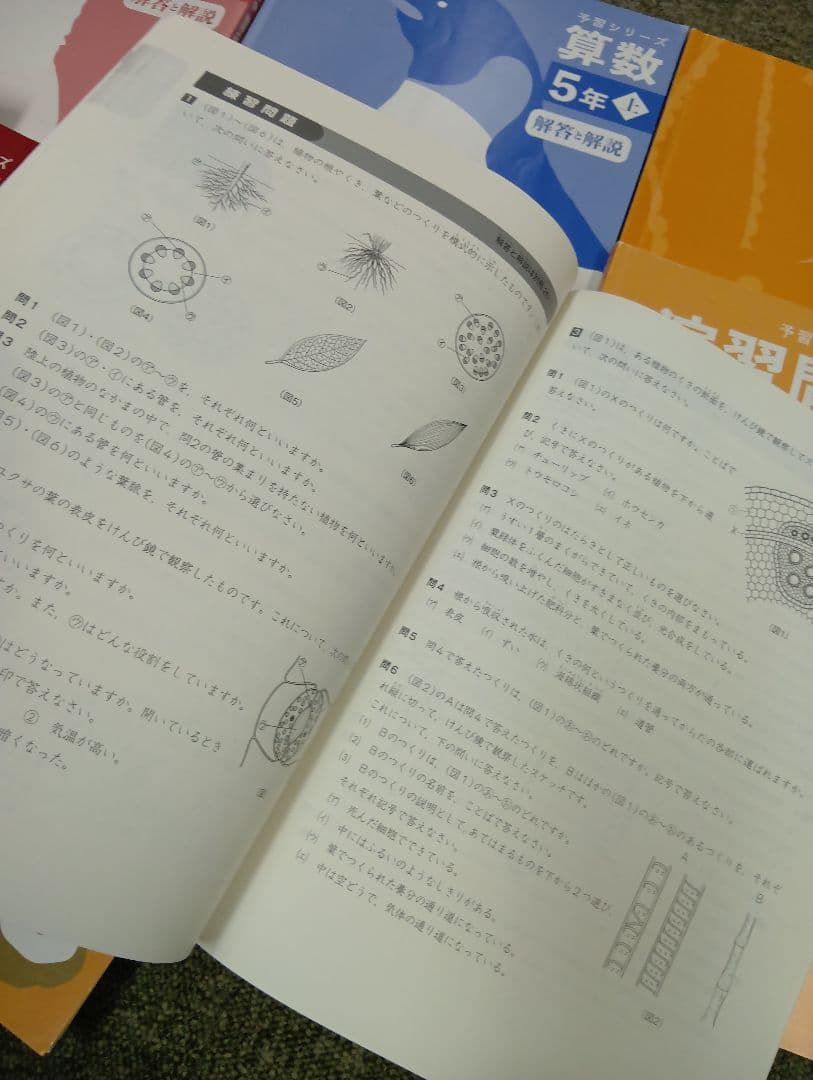 解答と解説
予習シリーズ
算数
5年上
解答と解説
予習
練習問題
1 (図1)~(図6)は、植物の根やくき、葉などのつくりを模式的に示したものです。
いて、次の問いに答えなさい。
(図1)
(図2)
(図4)
(図3)
(図5)
(図6)
問1 (図1)・(図2)の㋐~㋒を、それぞれ何といいますか。
問2 (図3)の㋐・㋑にある管を、それぞれ何といいますか。
問3 陸上の植物のなかまの中で、問2の管の集まりを持たない植物を何といいますか。
(図3)の㋐と同じものを(図4)の㋐~㋒から選びなさい。
(図4)の㋒にある管を何といいますか。
図5)・(図6)のような葉脈を、それぞれ何といいますか。
ユクサの葉の表皮をけんび鏡で観察したものです。これについて、次の問
つくりを何といいますか。
といいますか。
すか。また、㋒はどんな役割をしていますか。
はどうなっていますか。開いているとき
印で答えなさい。
② 気温が高い。
暗くなった。
3 (図1)は、ある植物のくきの断面を、けんび鏡で観察して
いて、次の問いに答えなさい。
問1 (図1)のXのつくりは何ですか。ことばで
答えなさい。
問2 くきにXのつくりがある植物を下から選
び、記号で答えなさい。
(ア) チューリップ (イ) ホウセンカ
(ウ) トウモロコシ (エ) イネ
X
(図1)
問3 Xのつくりのはたらきとして正しいものを選びなさい。
(ア) うすい1層のまくからできていて、くきの内部をまもっている。
(イ) 葉緑体をふくんだ細胞がすきまなく並び、光合成をしている。
(ウ) 細胞の数を増やし、くきを太くしている。
(エ) 根から吸い上げた肥料分と、葉でつくられた養分の両方が通っている。
問4 根から吸収された水は、くきの何というつくりを通ってからだの各部に運ばれますか。
(ア) 表皮 (イ) ずい (ウ) 道管
問5 問4で答えたつくりは、(図1)のあ~のどれですか。記号で答えなさい。
問6 (図2)のAは問4で答えたつくりを、Bはほかの(図1)ののあるつくりを、それぞ
れ縦に切って、けんび鏡で観察したスケッチです。
これについて、下の問いに答えなさい。
(1) Bのつくりは、(図1)ののどれですか。
(2) Bのつくりの名前を、ことばで答えなさい。
(3) Bのつくりの説明として、あてはまるものを下から2つ選び、
それぞれ記号で答えなさい。
(ア) 死んだ細胞でできている。
(イ) 中にはふるいのようなしきりがある。
(ウ) 葉でつくられた養分の通り道になっている。
(エ) 中は空どうで、気体の通り道になっている。
A
B
(図2)